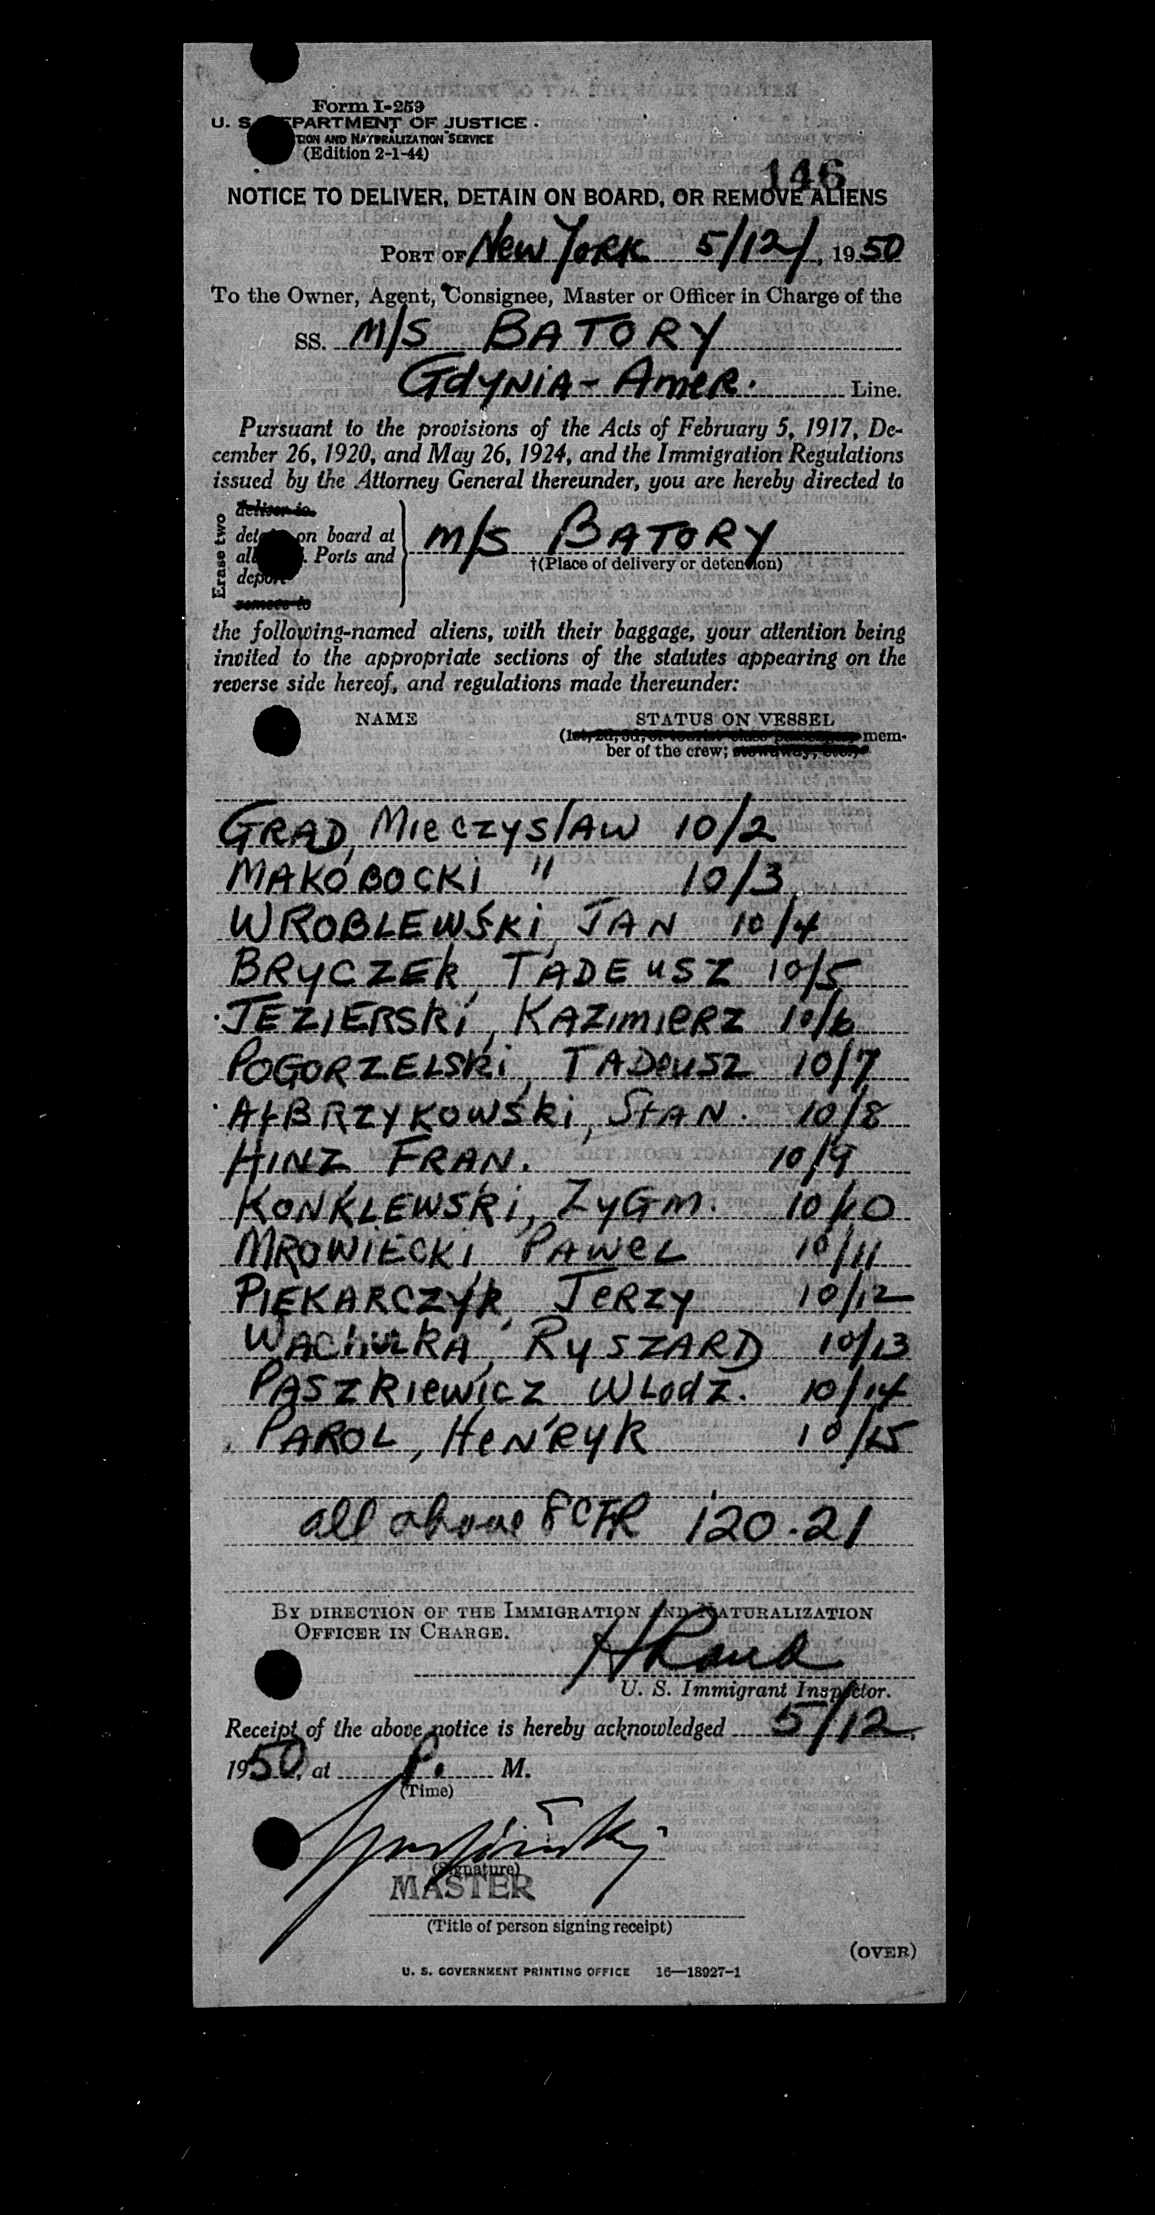 Form I-259
U. S. DEPARTMENT OF JUSTICE
TION AND NATURALIZATION SERVICE
(Edition 2-1-44)
146
NOTICE TO DELIVER, DETAIN ON BOARD, OR REMOVE ALIENS
PORT OF New York 5/12/, 1950
To the Owner, Agent, Consignee, Master or Officer in Charge of the
SS. M/S BATORY
GDYNIA-AMER. Line.
Pursuant to the provisions of the Acts of February 5, 1917, De-
cember 26, 1920, and May 26, 1924, and the Immigration Regulations
issued by the Attorney General thereunder, you are hereby directed to
Erase two
deliver to
detain on board at
all . Ports and
deport
remove to
M/S BATORY
†(Place of delivery or detention)
the following-named aliens, with their baggage, your attention being
invited to the appropriate sections of the statutes appearing on the
reverse side hereof, and regulations made thereunder:
NAME STATUS ON VESSEL
(1st, 2d, 3d, or tourist class passenger, mem-
ber of the crew; stowaway, etc.)
GRAD, MIECZYSLAW 10/2
MAKOBOCKI " 10/3
WROBLEWSKI, JAN 10/4
BRYCZEK, TADEUSZ 10/5
JEZIERSKI, KAZIMIERZ 10/6
POGORZELSKI, TADEUSZ 10/7
SKI, STAN. 10/8
HINZ FRAN. 10/9
KONKLEWSKI, ZYGM. 10/10
MROWIECKI, PAWEL 10/11
PIEKARCZYK, JERZY 10/12
WACHULKA, RYSZARD 10/13
PASZKIEWICZ WLODZ. 10/14
PAROL, HENRYK 10/15
all above 8 CFR 120.21
BY DIRECTION OF THE IMMIGRATION AND NATURALIZATION
OFFICER IN CHARGE.
U. S. Immigrant Inspector.
Receipt of the above notice is hereby acknowledged 5/12,
1950, at P. M.
(Time)
(Signature)
MASTER
(Title of person signing receipt)
(OVER)
U. S. GOVERNMENT PRINTING OFFICE 16—18927-1